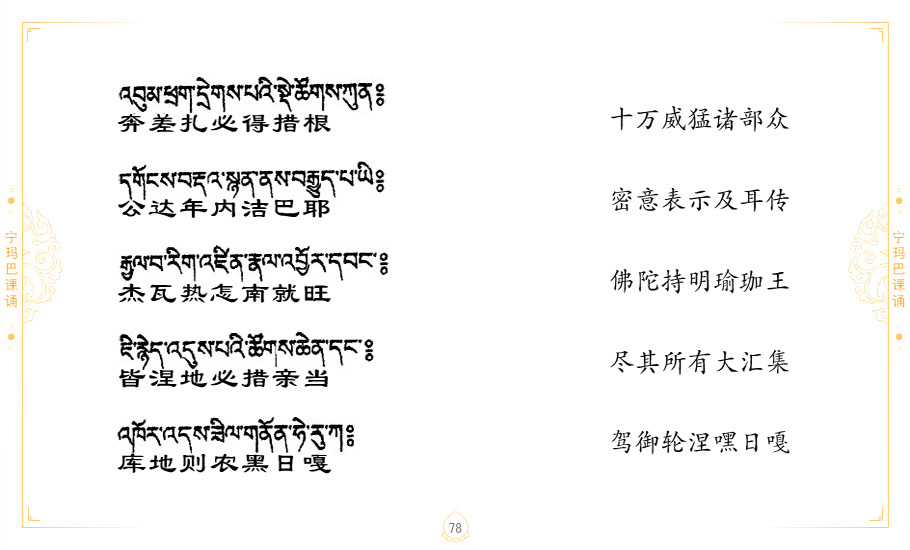 འབུམ་ཕྲག་དྲེགས་པའི་སྡེ་ཚོགས་ཀུན༔
奔差扎必得措根
十万威猛诸部众
དགོངས་བརྡའ་སྙན་ནས་བརྒྱུད་པ་ཡི༔
公达年内洁巴耶
密意表示及耳传
རྒྱལ་བ་རིག་འཛིན་རྣལ་འབྱོར་དབང་༔
杰瓦热怎南就旺
佛陀持明瑜珈王
ཇི་རྙེད་འདུས་པའི་ཚོགས་ཆེན་དང་༔
皆涅地必措亲当
尽其所有大汇集
འཁོར་འདས་ཟིལ་གནོན་ཧེ་རུ་ཀ༔
库地则农黑日嘎
驾御轮涅嘿日嘎
宁玛巴课诵
宁玛巴课诵
78